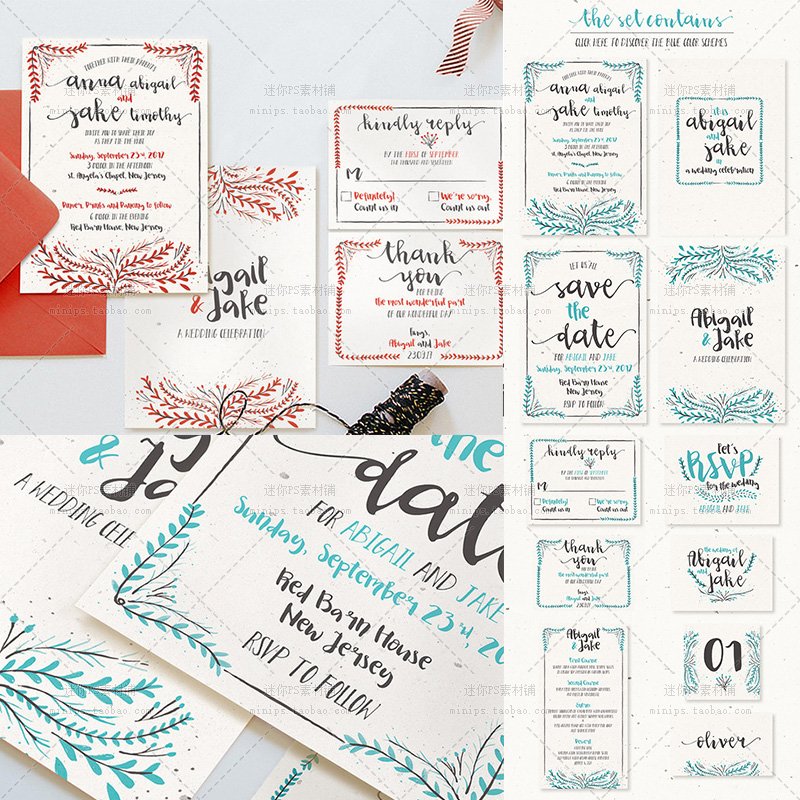 TOGETHER WITH THEIR PARENTS
anna abigail
and
jake timothy
INVITE YOU TO SHARE THEIR JOY
AS THEY TIE THE KNOT
Sunday, September 23rd, 2017
3 O'CLOCK IN THE AFTERNOON
St. Angela's Chapel, New Jersey
Dinner, Drinks and Dancing to follow
6 O'CLOCK IN THE EVENING
Red Barn House, New Jersey
Abigail
& Jake
A WEDDING CELEBRATION
kindly reply
BY THE FIRST OF SEPTEMBER
TWO THOUSAND AND SEVENTEEN
M
Definitely! We're sorry,
Count us in Count us out
thank
you
FOR BEING
the most wonderful part
OF OUR WONDERFUL DAY
hugs,
Abigail and Jake
23.09.17
the set contains
CLICK HERE TO DISCOVER THE BLUE COLOR SCHEMES
TOGETHER WITH THEIR PARENTS
anna abigail
and
jake timothy
INVITE YOU TO SHARE THEIR JOY
AS THEY TIE THE KNOT
Sunday, September 23rd, 2017
3 O'CLOCK IN THE AFTERNOON
St. Angela's Chapel, New Jersey
Dinner, Drinks and Dancing to follow
6 O'CLOCK IN THE EVENING
Red Barn House, New Jersey
it is
abigail
and
jake
in
a wedding celebration
LET US ALL
save
the
date
FOR ABIGAIL AND JAKE
Sunday, September 23rd, 2017
Red Barn House
New Jersey
RSVP TO FOLLOW
Abigail
& Jake
A WEDDING CELEBRATION
kindly reply
BY THE FIRST OF SEPTEMBER
M
Definitely! We're sorry,
Count us in Count us out
let's
RSVP
for the wedding
ABIGAIL AND JAKE
thank
you
FOR BEING
the most wonderful part
OF OUR WONDERFUL DAY
hugs,
Abigail and Jake
23.09.17
the wedding of
Abigail
and
Jake
Abigail
& Jake
First Course
Second Course
Dessert
01
oliver
&
A WEDDING CELE
the
date
FOR ABIGAIL AND JAKE
Sunday, September 23rd, 20
Red Barn House
New Jersey
RSVP TO FOLLOW
迷你PS素材铺
minips.taobao.com